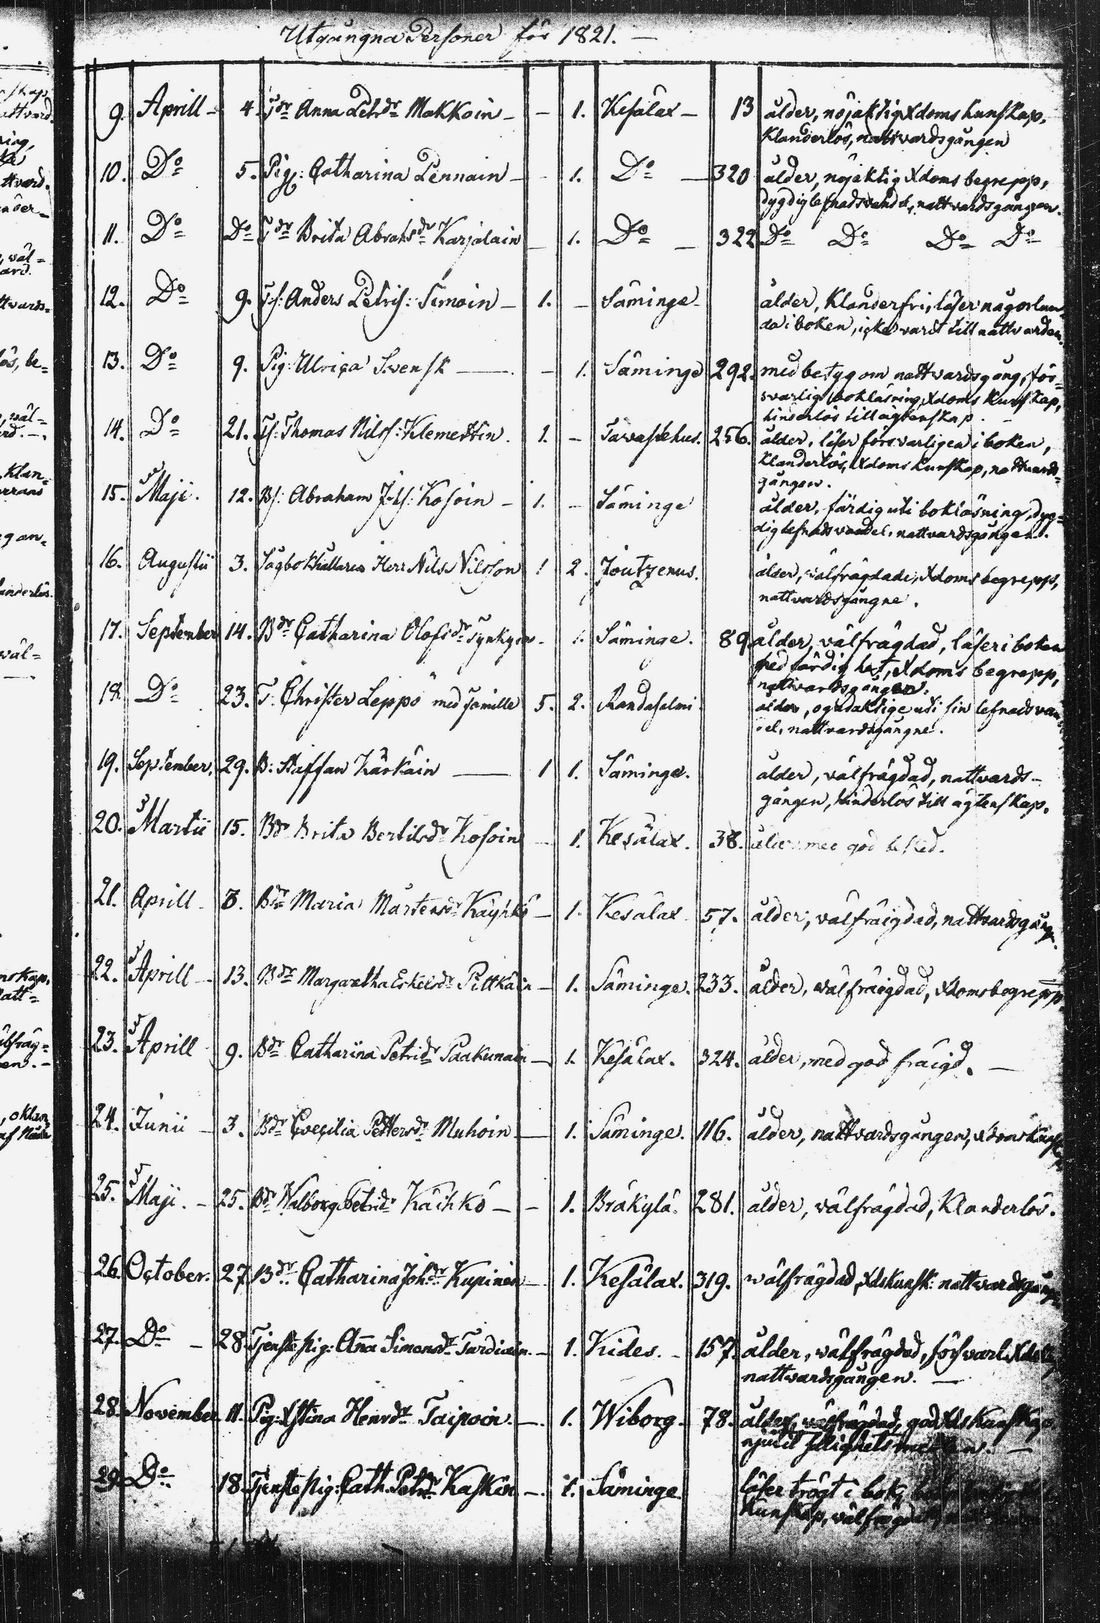 Utgångna Personer för 1821. —
9. Aprill — 4. Tdr Anna Petrdr Makkoin — — 1. Kesälax — 13 ålder, nöjaktig Xdoms kunskap,
klanderlös, nattvardsgången
10. Do 5. Pig: Catharina Pennain — - 1. Do — 320 ålder, nöjaktig Xdoms begrepp,
dygdig lefnadsvandel, nattvardsgången.
11. Do Do Tdr Brita Abrahsdr Karjalain — 1. Do — 322 Do Do Do Do
12. Do 9. Ts: Anders Petris: Simoin — 1. — Säminge. ålder, klanderfri, läser någorlun=
da i boken, icke varit till nattvarden.
13. Do 9. Pig: Ulrica Svensk — - 1. Säminge 292. med betyg om nattvardsgång, för=
svarlig bokläsning, Xdoms kunskap,
hinderlös till ägtenskap.
14. Do 21. Ts: Thomas Nilss: Klemettin. 1. — Tavastehus. 256. ålder, läser försvarligen i boken,
klanderlös, Xdoms kunskap, nattvards=
gången.
15. Maji. 12. Bs: Abraham Johs: Kosoin — 1. — Säminge ålder, färdig uti bokläsning, dyg=
dig lefnadsvandel, nattvardsgången.
16. Augusti 3. Herr Nils Nilsson 1 2. Joutzenus. ålder, välfrägdade, Xdoms begrepp,
nattvardsgångne.
17. September 14. Bdr Catharina Olofsdr - 1. Säminge. 89. ålder, välfrägdad, läser i boken
med färdighet, Xdoms begrepp,
nattvardsgången.
18. Do 23. T: Christer Leppö med familie 5. 2. Randasalmi. ålder, uti sin lefnadsvan=
del, nattvardsgångne.
19. September, 29. B: Staffan Kärkäin — 1 1. Säminge. ålder, välfrägdad, nattvards-
gången, hinderlös till ägtenskap.
20. Martii 15. Bdr Brita Bertilsdr Kosoin — 1. Kesälax. 38. ålder med god besked.
21. Aprill 8. Bdr Maria Mårtensdr — 1. Kesälax 57. ålder, välfräigdad, nattvardsgång.
22. Aprill — 13. Bdr Margaretha Eskelsdr Pittkäin — 1. Säminge. 233. ålder, välfräigdad, Xdoms begrepp
23. Aprill 9. Bdr Catharina Petridr Paakunain — 1. Kesälax. 324. ålder, med god fräigd. —
24. Junii — 3. Bdr Cecilia Pettersdr Muhoin — 1. Säminge. 116. ålder, nattvardsgången,
25. Maji. — 25. Bdr Walborg Petridr Käihkö — — 1. Bräkylä. 281. ålder, välfrägdad, klanderlös.
26. October. 27. Bdr: Catharina Johdr Kupinen — 1. Kesälax. 319. välfrägdad, Xdskunsk: nattvardsgång
27. Do — 28. Tjenstepig: Anna Simonsdr Tardiain. — 1. Kides. — 157. ålder, välfrägdad, försvarl.
nattvardsgången. —
28. November 11. Pig: Xstina Henrdr Taipoin. — 1. Wiborg. 78. ålder, välfrägdad, god Xdskunskap
njutit —
29. Do 18. Tjenstepig: Cath. Petrdr Kaskin — 1. Säminge. läser trögt i bok,
kunskap, välfrägdad,